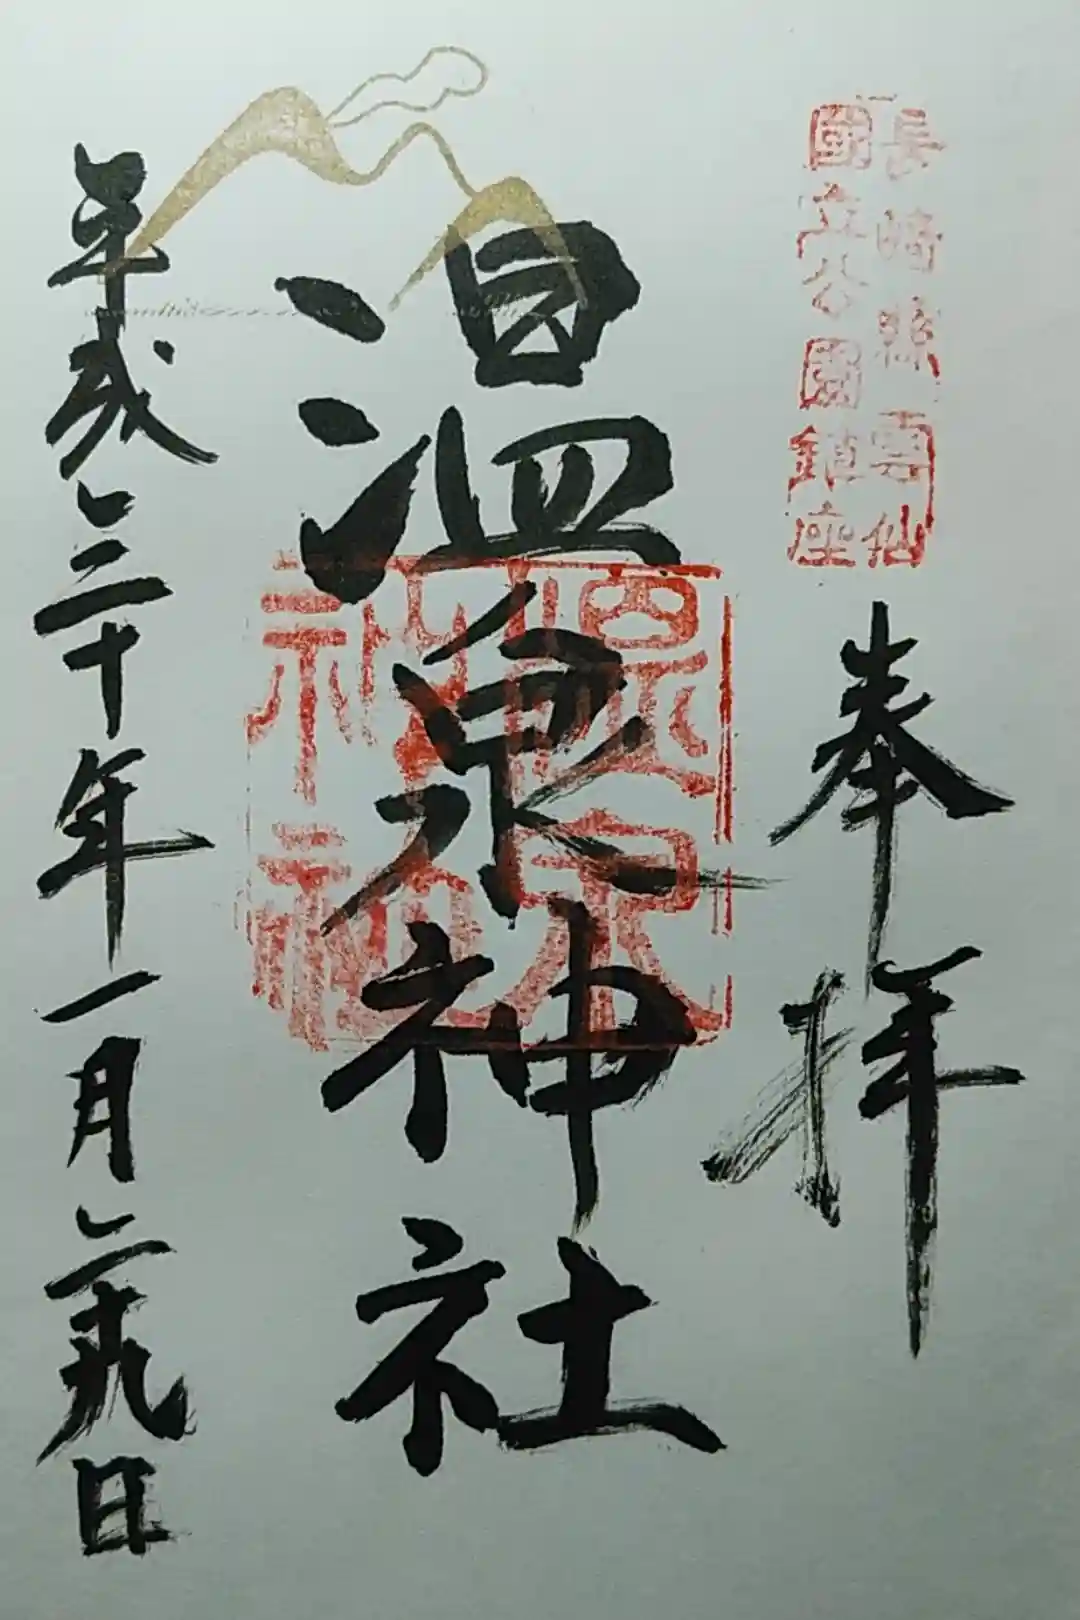 長崎縣雲仙
國立公園鎮座
奉拝
温泉神社
温泉
神社
平成二十年一月二十九日